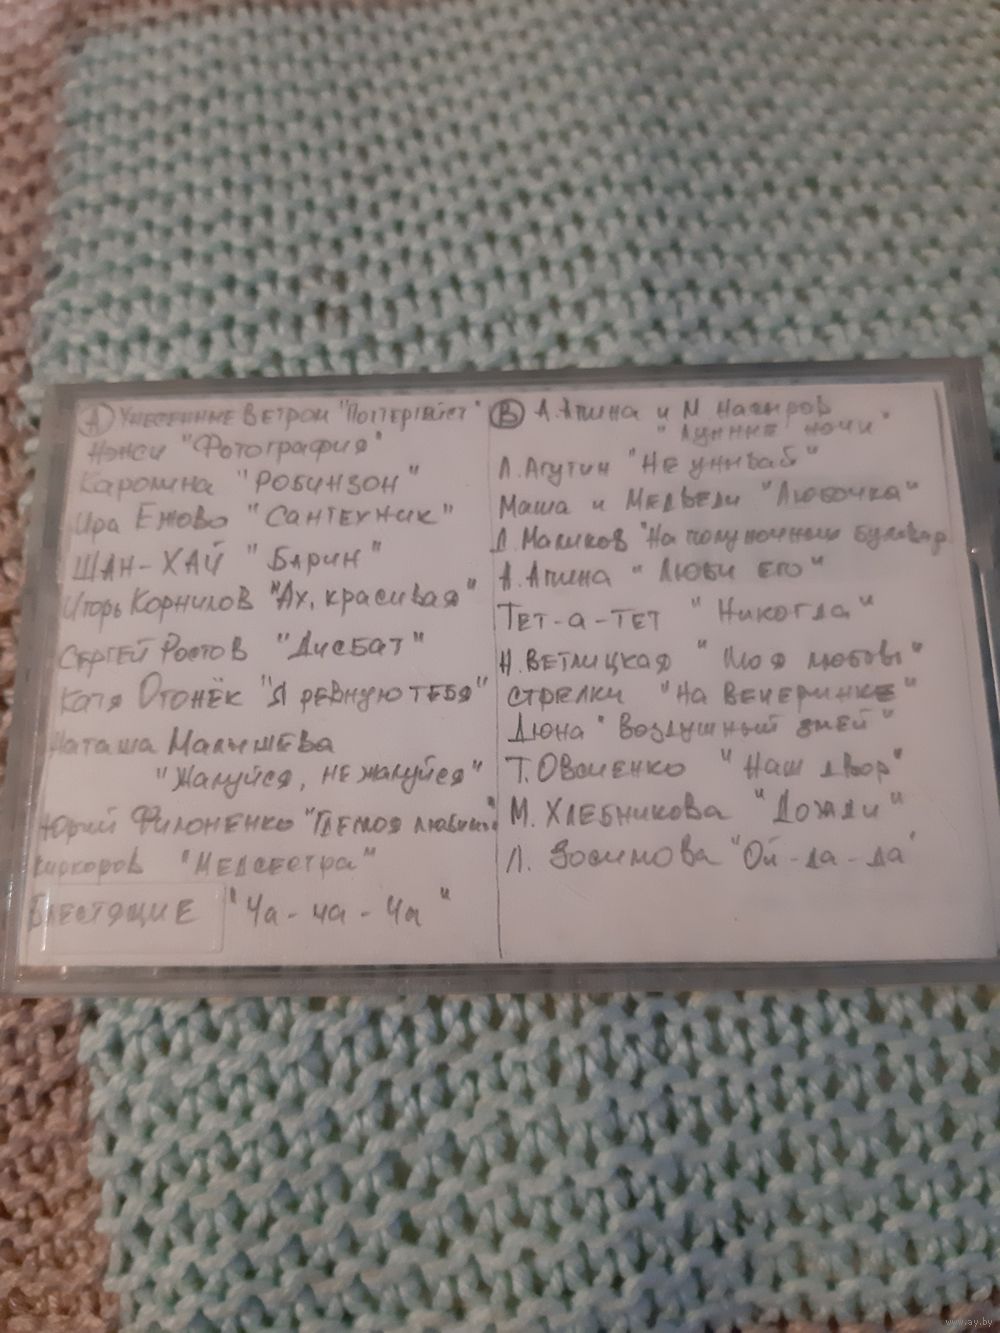 А Унесенные Ветром "Полтергейст"
Нэнси "Фотография"
Каролина "Робинзон"
Ира Ежова "Сантехник"
ШАН-ХАЙ "Барин"
Игорь Корнилов "Ах, красивая"
Сергей Ростов "Дисбат"
Катя Огонёк "Я ревную тебя"
Наташа Малышева
"Жалуйся, не жалуйся"
Юрий Филоненко "Где моя любимая
Киркоров "Медсестра"
Блестящие "Ча-ча-ча"
В А. Апина и М. Насыров
"Лунные ночи"
Л. Агутин "Не унывай"
Маша и Медведи "Любочка"
Д. Маликов "На полуночный бульвар
А. Апина "Люби его"
Тет-а-тет "Никогда"
Н. Ветлицкая "Моя любовь"
Стрелки "На вечеринке"
Дюна "Воздушный змей"
Т. Овсиенко "Наш двор"
М. Хлебникова "Дожди"
Л. Зосимова "Ой-ла-ла"
www.ay.by